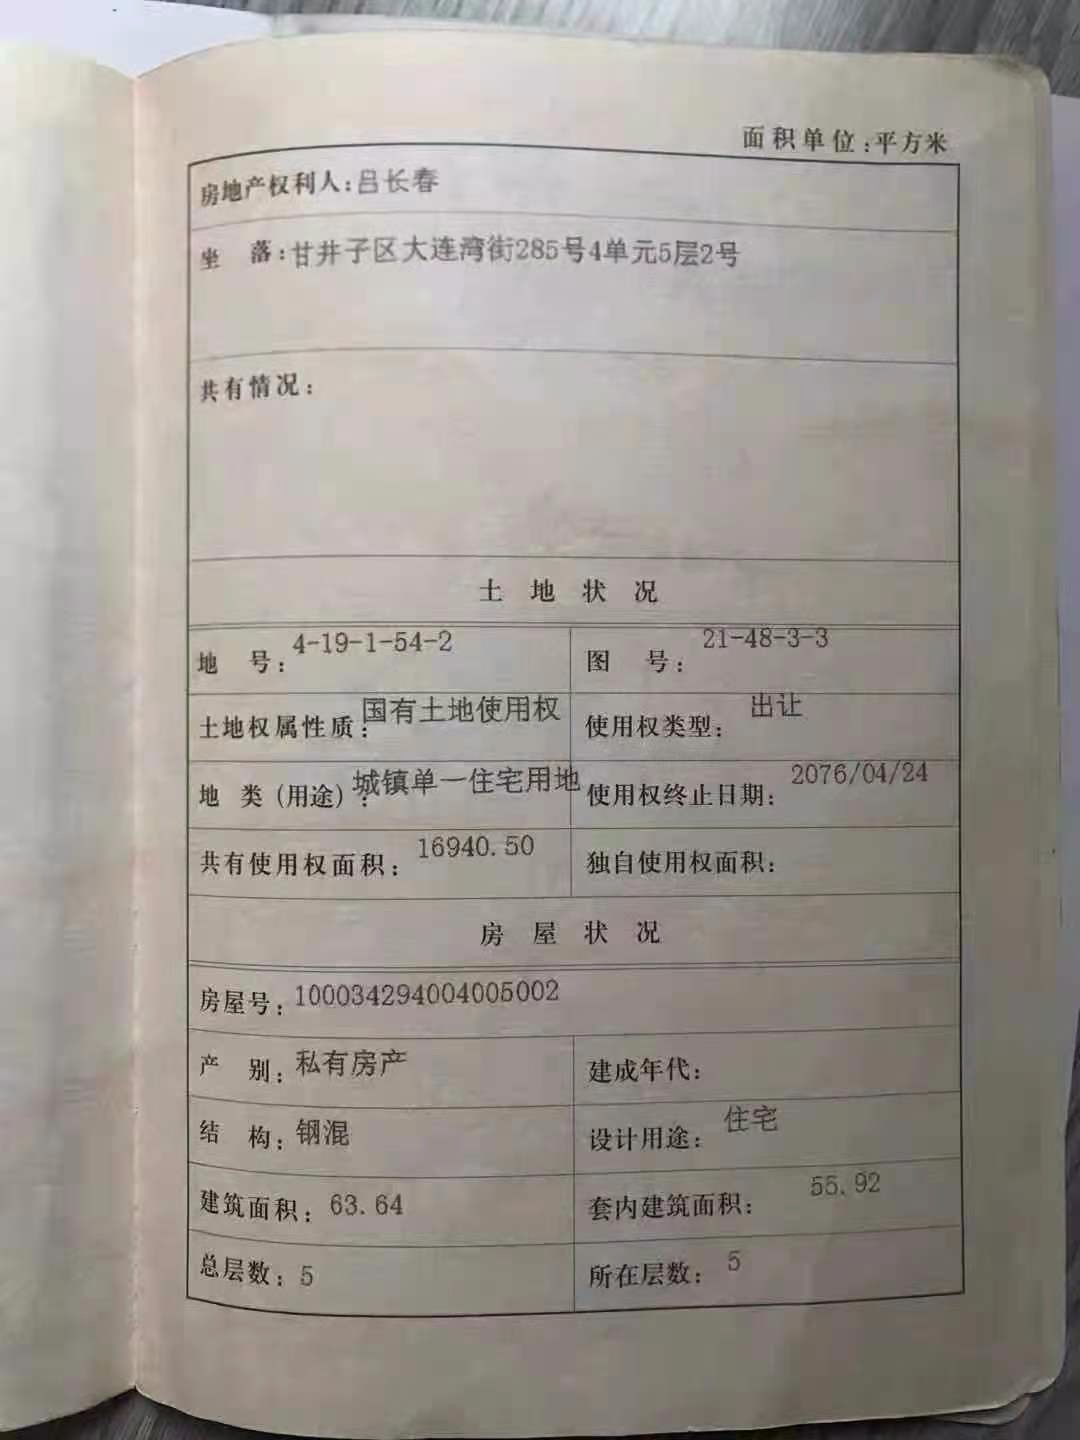 面积单位:平方米
房地产权利人:吕长春
坐 落:甘井子区大连湾街285号4单元5层2号
共有情况:
土 地 状 况
地 号:4-19-1-54-2 图 号:21-48-3-3
土地权属性质:国有土地使用权 使用权类型:出让
地 类(用途):城镇单一住宅用地 使用权终止日期:2076/04/24
共有使用权面积:16940.50 独自使用权面积:
房 屋 状 况
房屋号:100034294004005002
产 别:私有房产 建成年代:
结 构:钢混 设计用途:住宅
建筑面积:63.64 套内建筑面积:55.92
总层数:5 所在层数:5